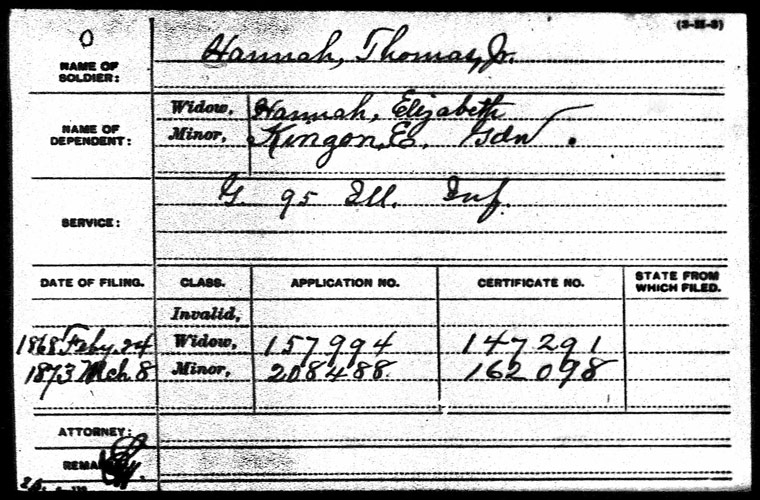 (3-111-3)
0
NAME OF SOLDIER: Hannah, Thomas, Jr.
NAME OF DEPENDENT:
Widow, Hannah, Elizabeth
Minor, Kingon, E. Gdn.
SERVICE: G. 95 Ill. Inf.
DATE OF FILING. CLASS. APPLICATION NO. CERTIFICATE NO. STATE FROM WHICH FILED.
Invalid,
1868 Feby. 24 Widow, 157994 147291
1873 Mch 8 Minor, 208488 162098
ATTORNEY: